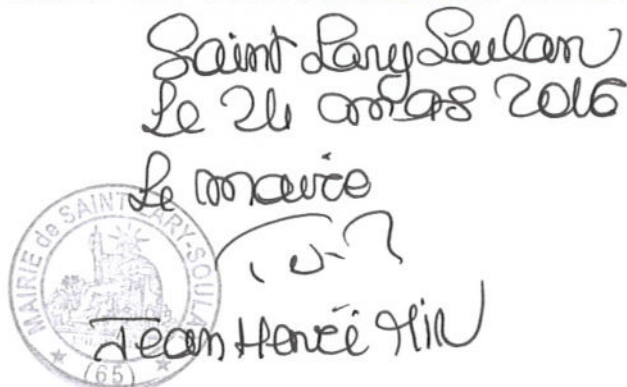 Saint Lary Soulan
Le 24 mars 2016
Le maire
MAIRIE de SAINT-LARY-SOULAN
(65)
Jean Henri Mir